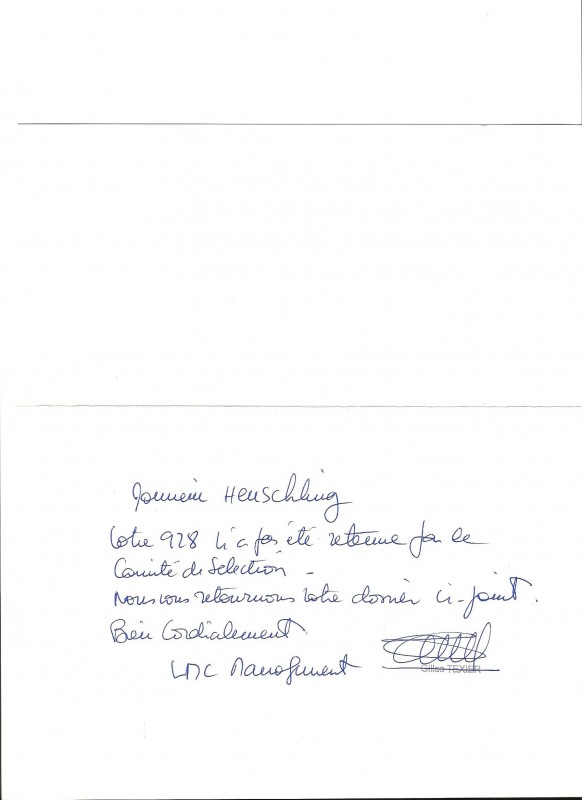 Monsieur Henschling
Votre 928 n'a pas été retenue par le
Comité de Sélection -
Nous vous retournons votre dossier ci-joint.
Bien Cordialement
LMC Management
Gilles TEXIER